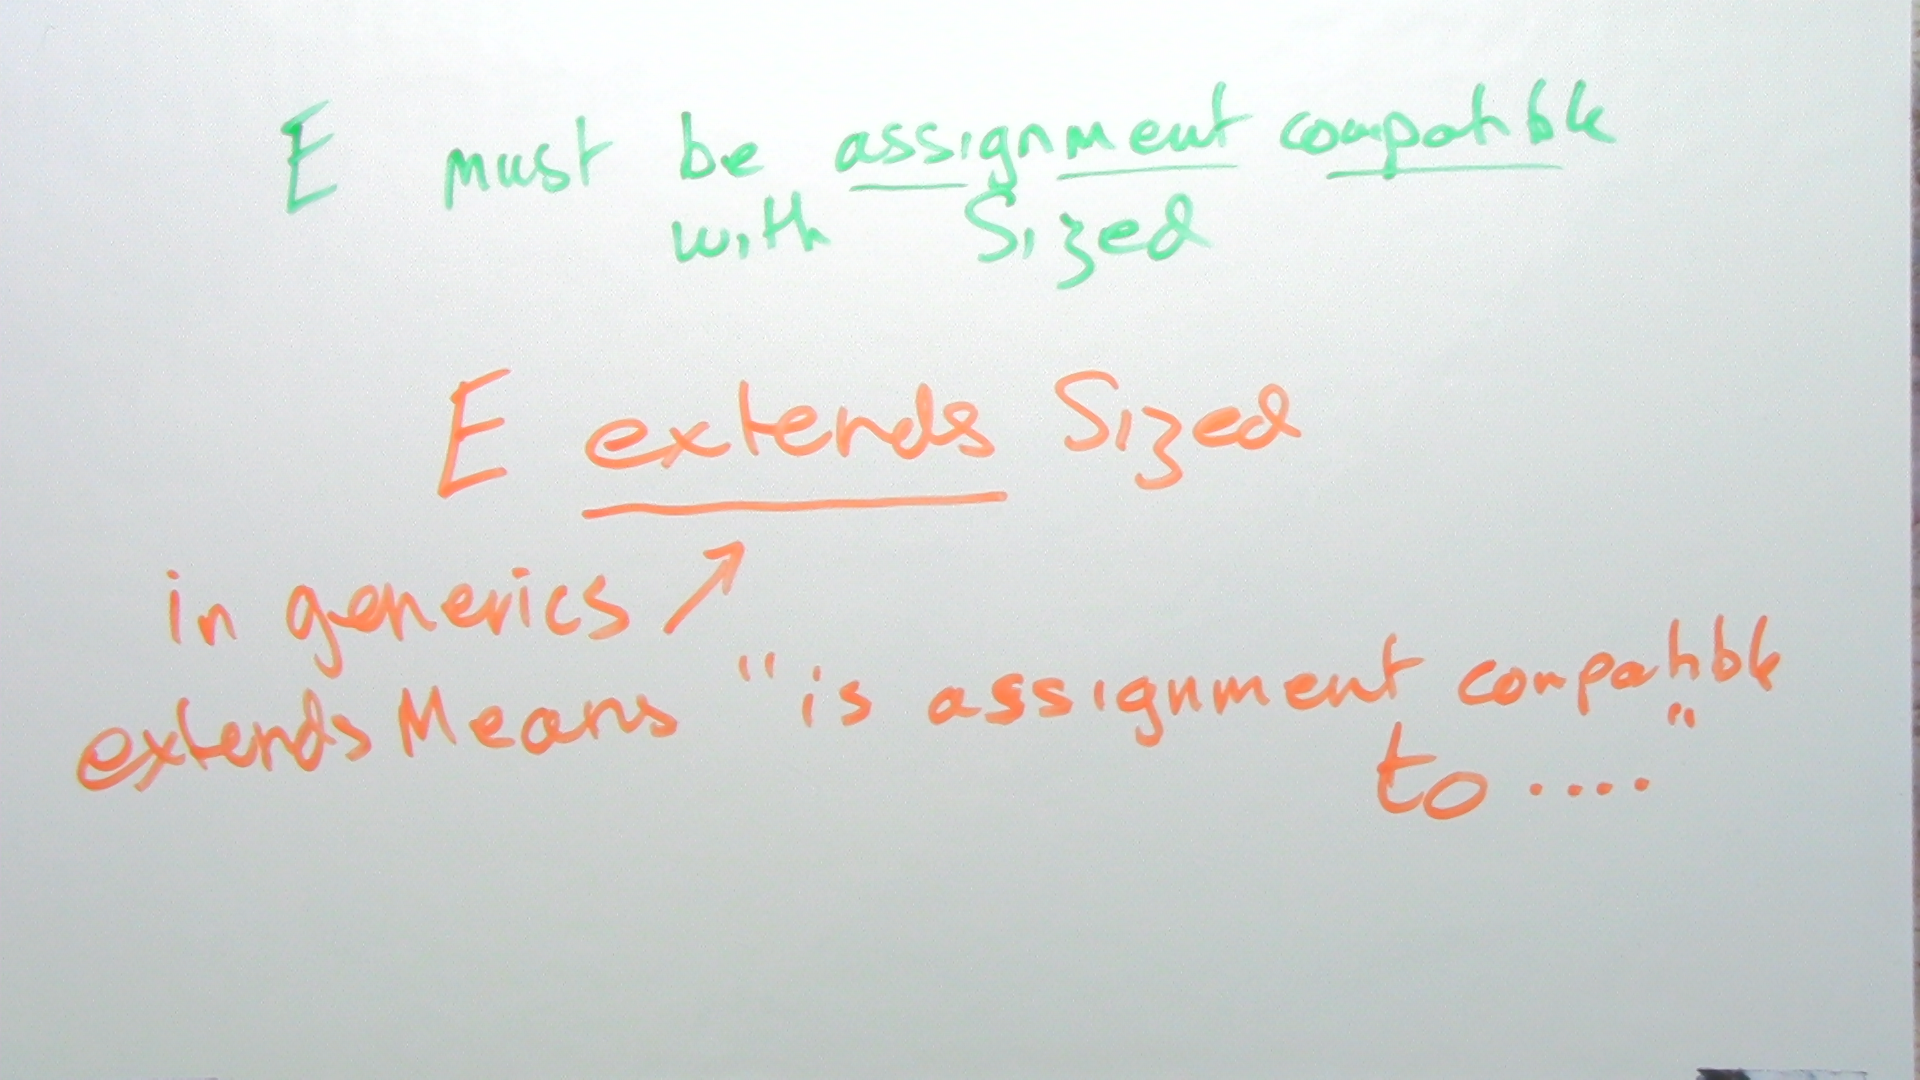 E must be assignment compatible
with Sized
E extends Sized
in generics
extends Means "is assignment compatible
to ...."